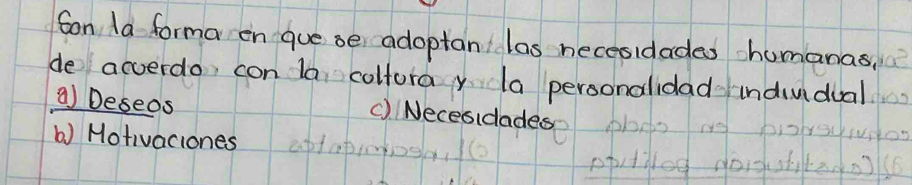 Son la forma en que se adoptan las necesidades humanas,
de acuerdo con la cultura y la personalidad individual
a) Deseos c) Necesidades
b) Motivaciones